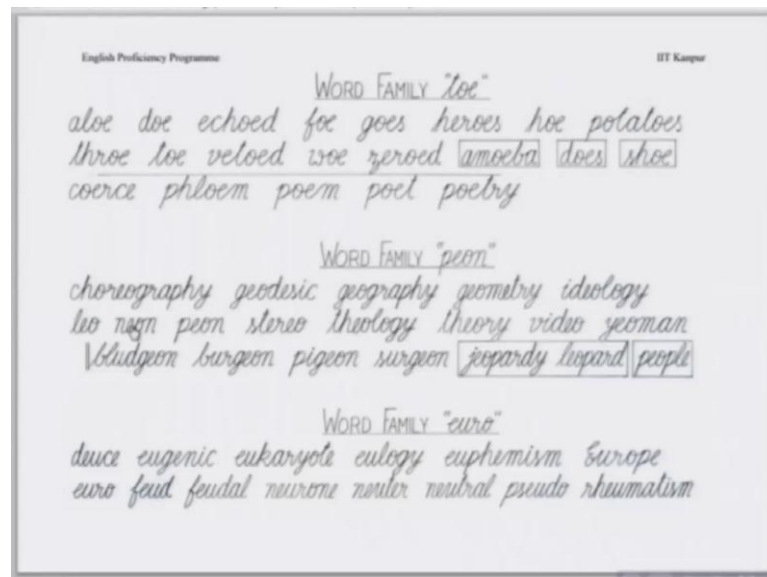 English Proficiency Programme IIT Kanpur
WORD FAMILY "toe"
aloe doe echoed foe goes heroes hoe potatoes
throe toe vetoed woe zeroed amoeba does shoe
coerce phloem poem poet poetry
WORD FAMILY "peon"
choreography geodesic geography geometry ideology
leo neon peon stereo theology theory video yeoman
bludgeon burgeon pigeon surgeon jeopardy leopard people
WORD FAMILY "euro"
deuce eugenic eukaryote eulogy euphemism Europe
euro feud feudal neurone neuter neutral pseudo rheumatism